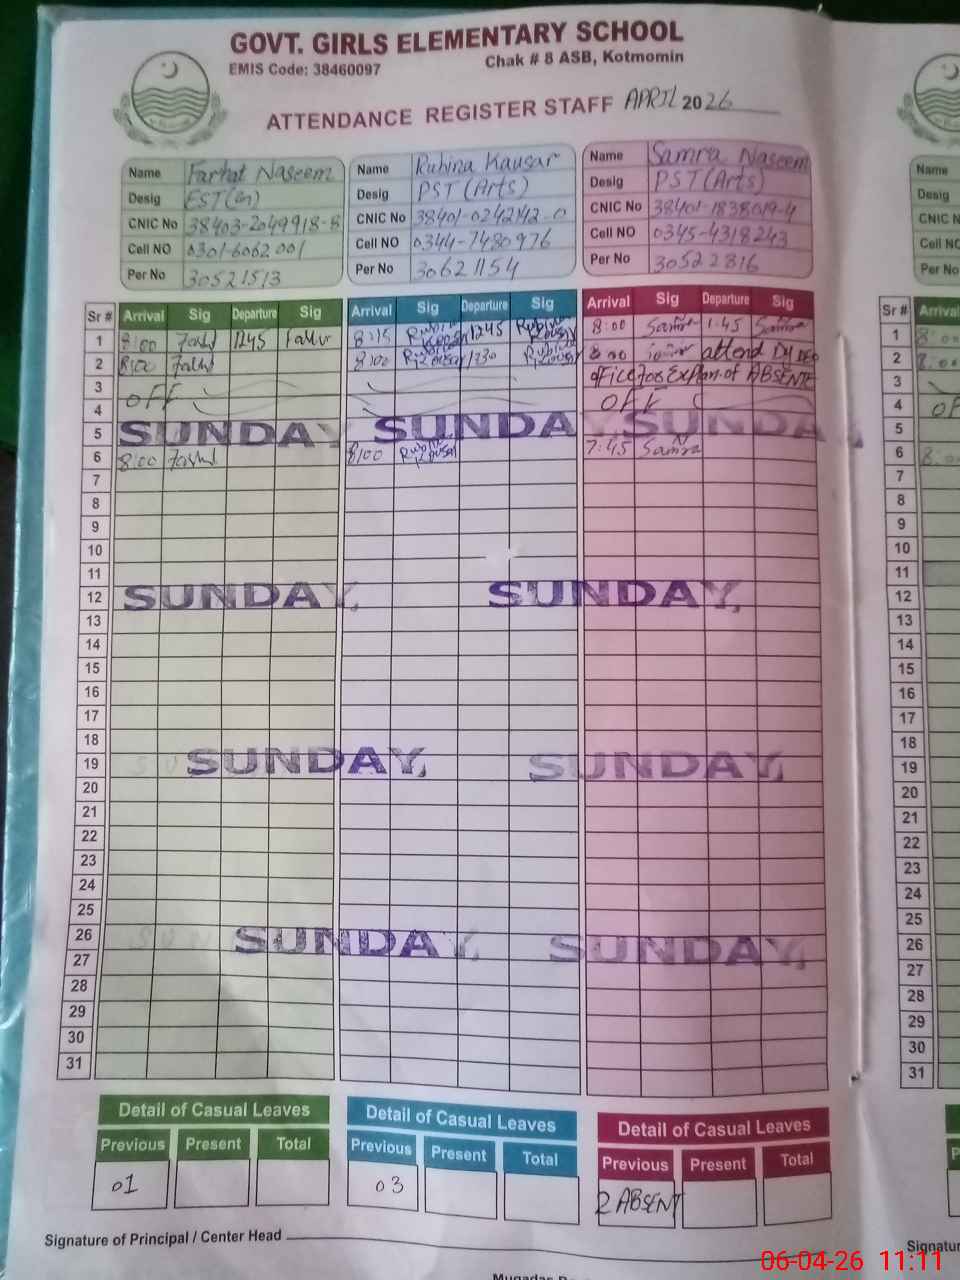 GOVT. GIRLS ELEMENTARY SCHOOL
EMIS Code: 38460097
Chak # 8 ASB, Kotmomin
ATTENDANCE REGISTER STAFF APRIL 2026
Name Farhat Naseem
Desig EST(
CNIC No 38403-2049918-8
Cell NO 0301-6062001
Per No 30521513
Name Rubina Kausar
Desig PST(Arts)
CNIC No 38401-0242142-0
Cell NO 0344-7480976
Per No 30621154
Name Samra Naseem
Desig PST(Arts)
CNIC No 38401-1838019-4
Cell NO 0345-4318243
Per No 30522816
Name
Desig
CNIC N
Cell NO
Per No
Sr # Arrival Sig Departure Sig Arrival Sig Departure Sig Arrival Sig Departure Sig Sr # Arriva
1 8:00 1245 8:15 Rubina Kausar 1245 Rubina Kausar 8:00 Samra 1:45 Samra 1 8:00
2 8:00 8:00 Rubina Kausar 1230 Rubina Kausar 8:00 Samra attend Dy DEO 2 8:00
3 office for Explan. of ABSENTE 3
4 OFF OFF 4 OF
5 SUNDAY SUNDAY SUNDAY 5
6 8:00 8:00 Rubina Kausar 7:45 Samra 6 8:00
7 7
8 8
9 9
10 10
11 11
12 SUNDAY, SUNDAY, 12
13 13
14 14
15 15
16 16
17 17
18 18
19 SUNDAY, SUNDAY, 19
20 20
21 21
22 22
23 23
24 24
25 25
26 SUNDAY, SUNDAY, 26
27 27
28 28
29 29
30 30
31 31
Detail of Casual Leaves
Previous Present Total
01
Detail of Casual Leaves
Previous Present Total
03
Detail of Casual Leaves
Previous Present Total
2 ABSENT
Signature of Principal / Center Head
Signatu
06-04-26 11:11